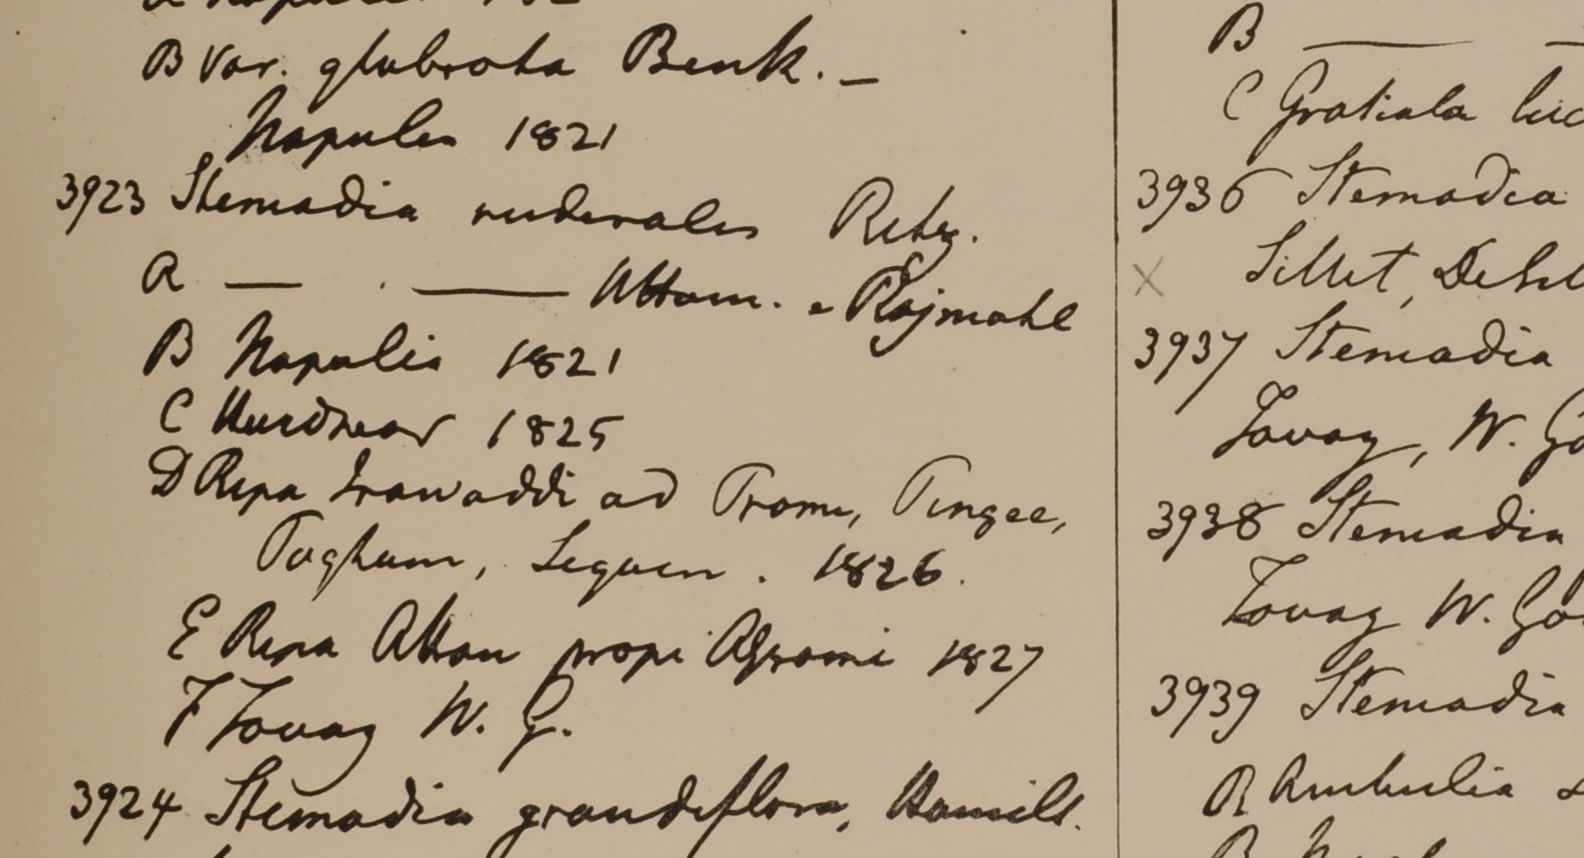 B Var. glabrata Benth. —
Napalia 1821
3923 Stemadia ruderalis Retz.
A — —— Attam. e Rajmahl
B Napalia 1821
C Hurdwar 1825
D Ripa Irawaddi ad Prome, Pingee,
Toghum, Seguen. 1826.
E Ripa Attran prope 1827
F Tavoy W. G.
3924 Stemodia grandiflora, Hamilt.
B — —
C Gratiola luc
3936 Stemodia
X Sillet, Deh
3937 Stemodia
Tavoy, W. Go
3938 Stemodia
Tavoy W. Go
3939 Stemodia
A Ambulia
B